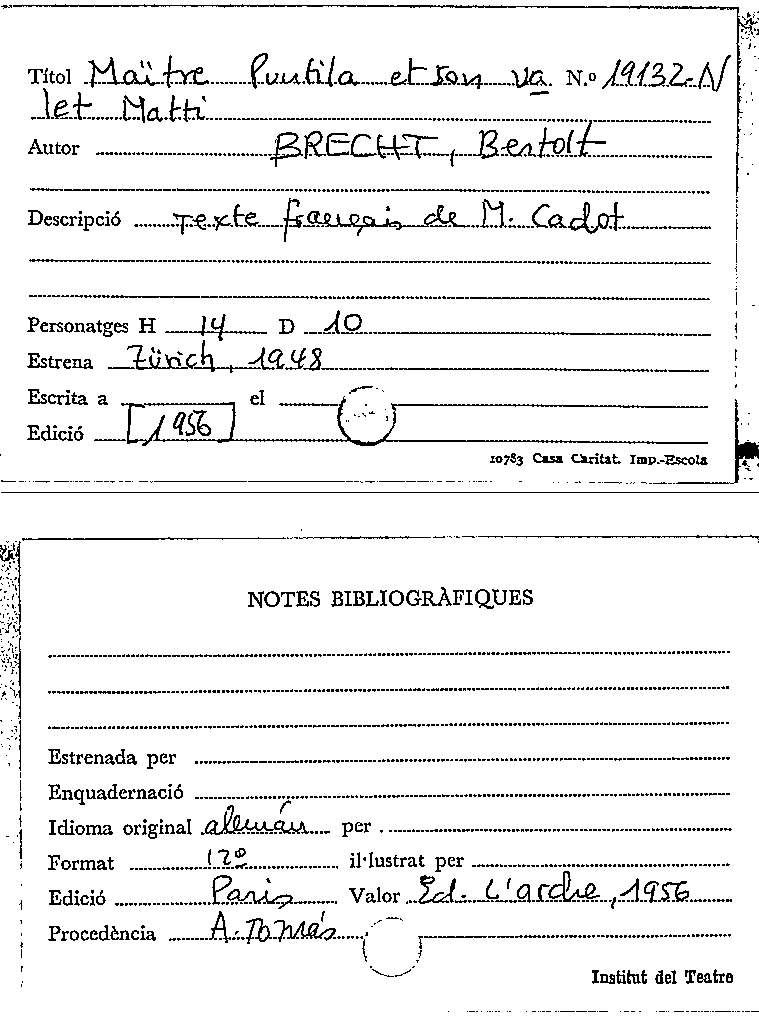 Títol Maître Puntila et son va N.º 19132-N
let Matti
Autor BRECHT, Bertolt
Descripció Texte français de M. Cadot
Personatges H 14 D 10
Estrena Zürich, 1948
Escrita a el
Edició [1956]
10783 Casa Caritat. Imp.-Escola
NOTES BIBLIOGRÀFIQUES
Estrenada per
Enquadernació
Idioma original alemán per
Format 12º il·lustrat per
Edició Paris Valor Ed. L'arche, 1956
Procedència A. Tomás
Institut del Teatre